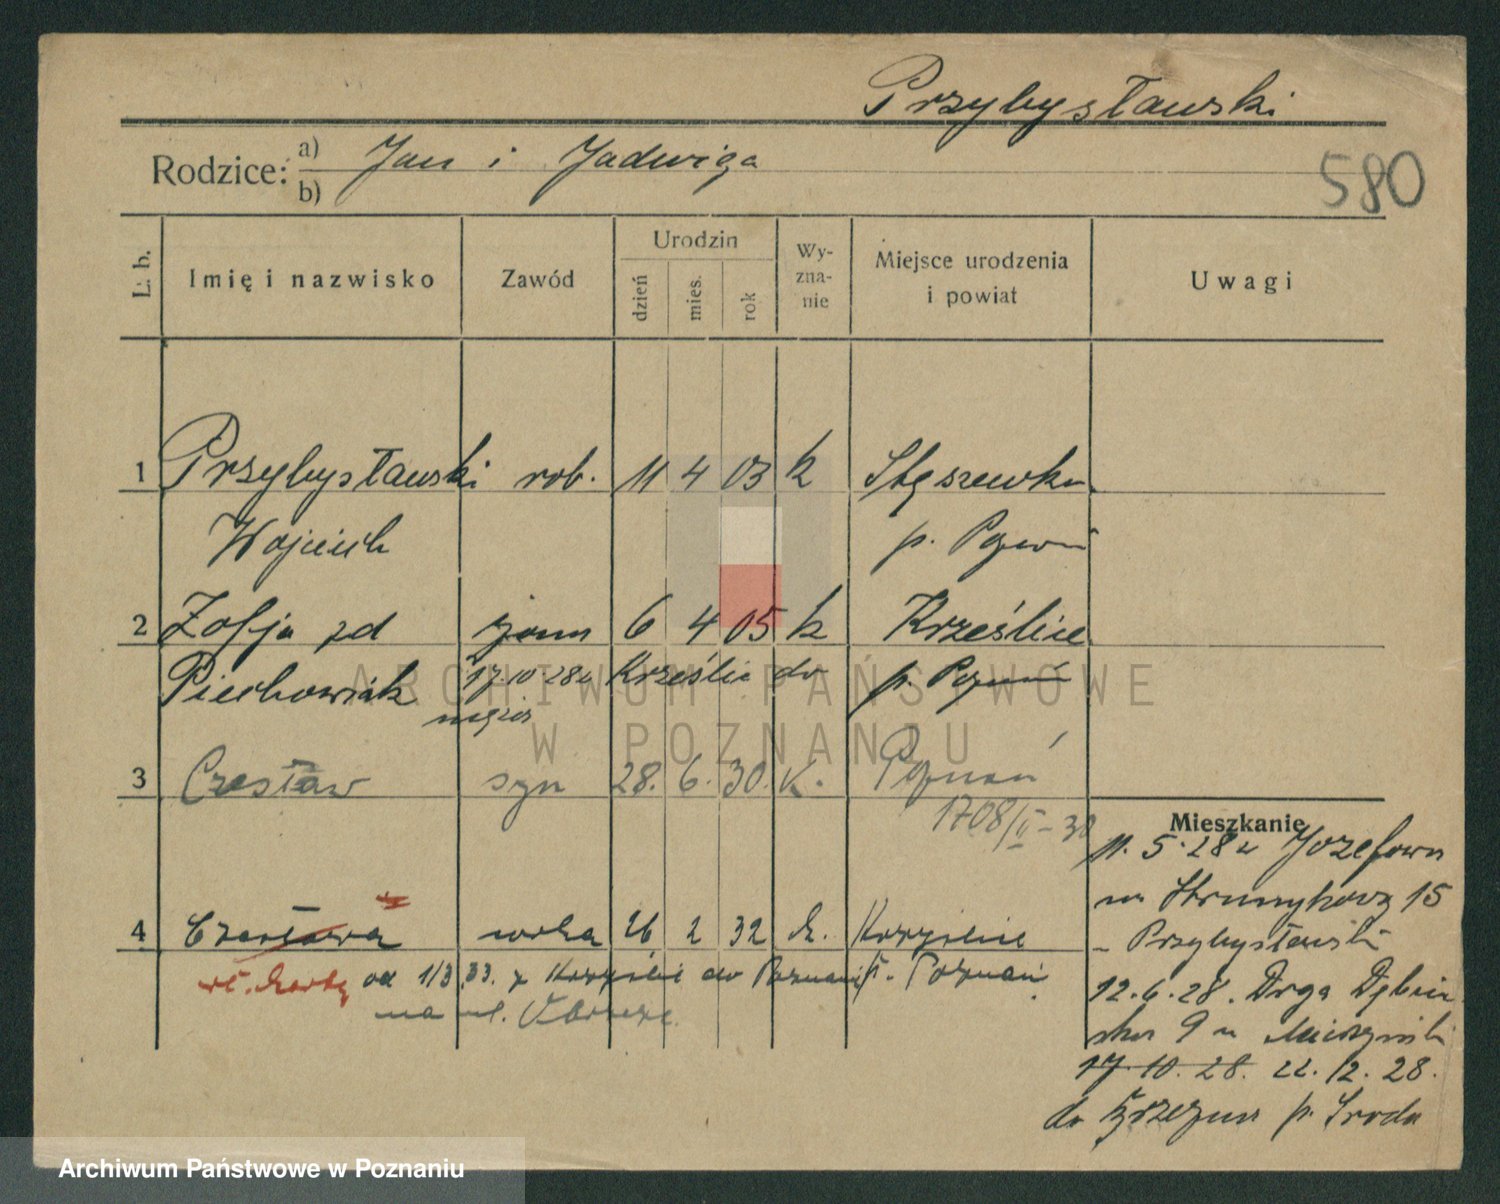 Przybysławski
Rodzice: a) Jan i Jadwiga
b)
580
L. b.
Imię i nazwisko
Zawód
Urodzin
dzień
mies.
rok
Wy-
zna-
nie
Miejsce urodzenia
i powiat
Uwagi
1 Przybysławski rob. 11 4 03 k Stęszewka
Wojciech p. Poznań
2 Zofja zd żona 6 4 05 k Krześlice
Piechowiak 17.10.28 z Krześlic do p. Poznań
męża
3 Czesław syn 28. 6. 30. k. Poznań
1708/II-30
Mieszkanie
11.5.28 Józefowa
Strumykowa 15
- Przybysławski
4 Czesława córka 26 2 32 k. Krześlice
wł. kartę od 1/3 33. z Krześlic do Poznania p. Poznań
na ul.
12.6.28. Drga Dębiń
ska 9
17.10.28. 22.12.28.
do p. Środa
ARCHIWUM PAŃSTWOWE
W POZNANIU
Archiwum Państwowe w Poznaniu